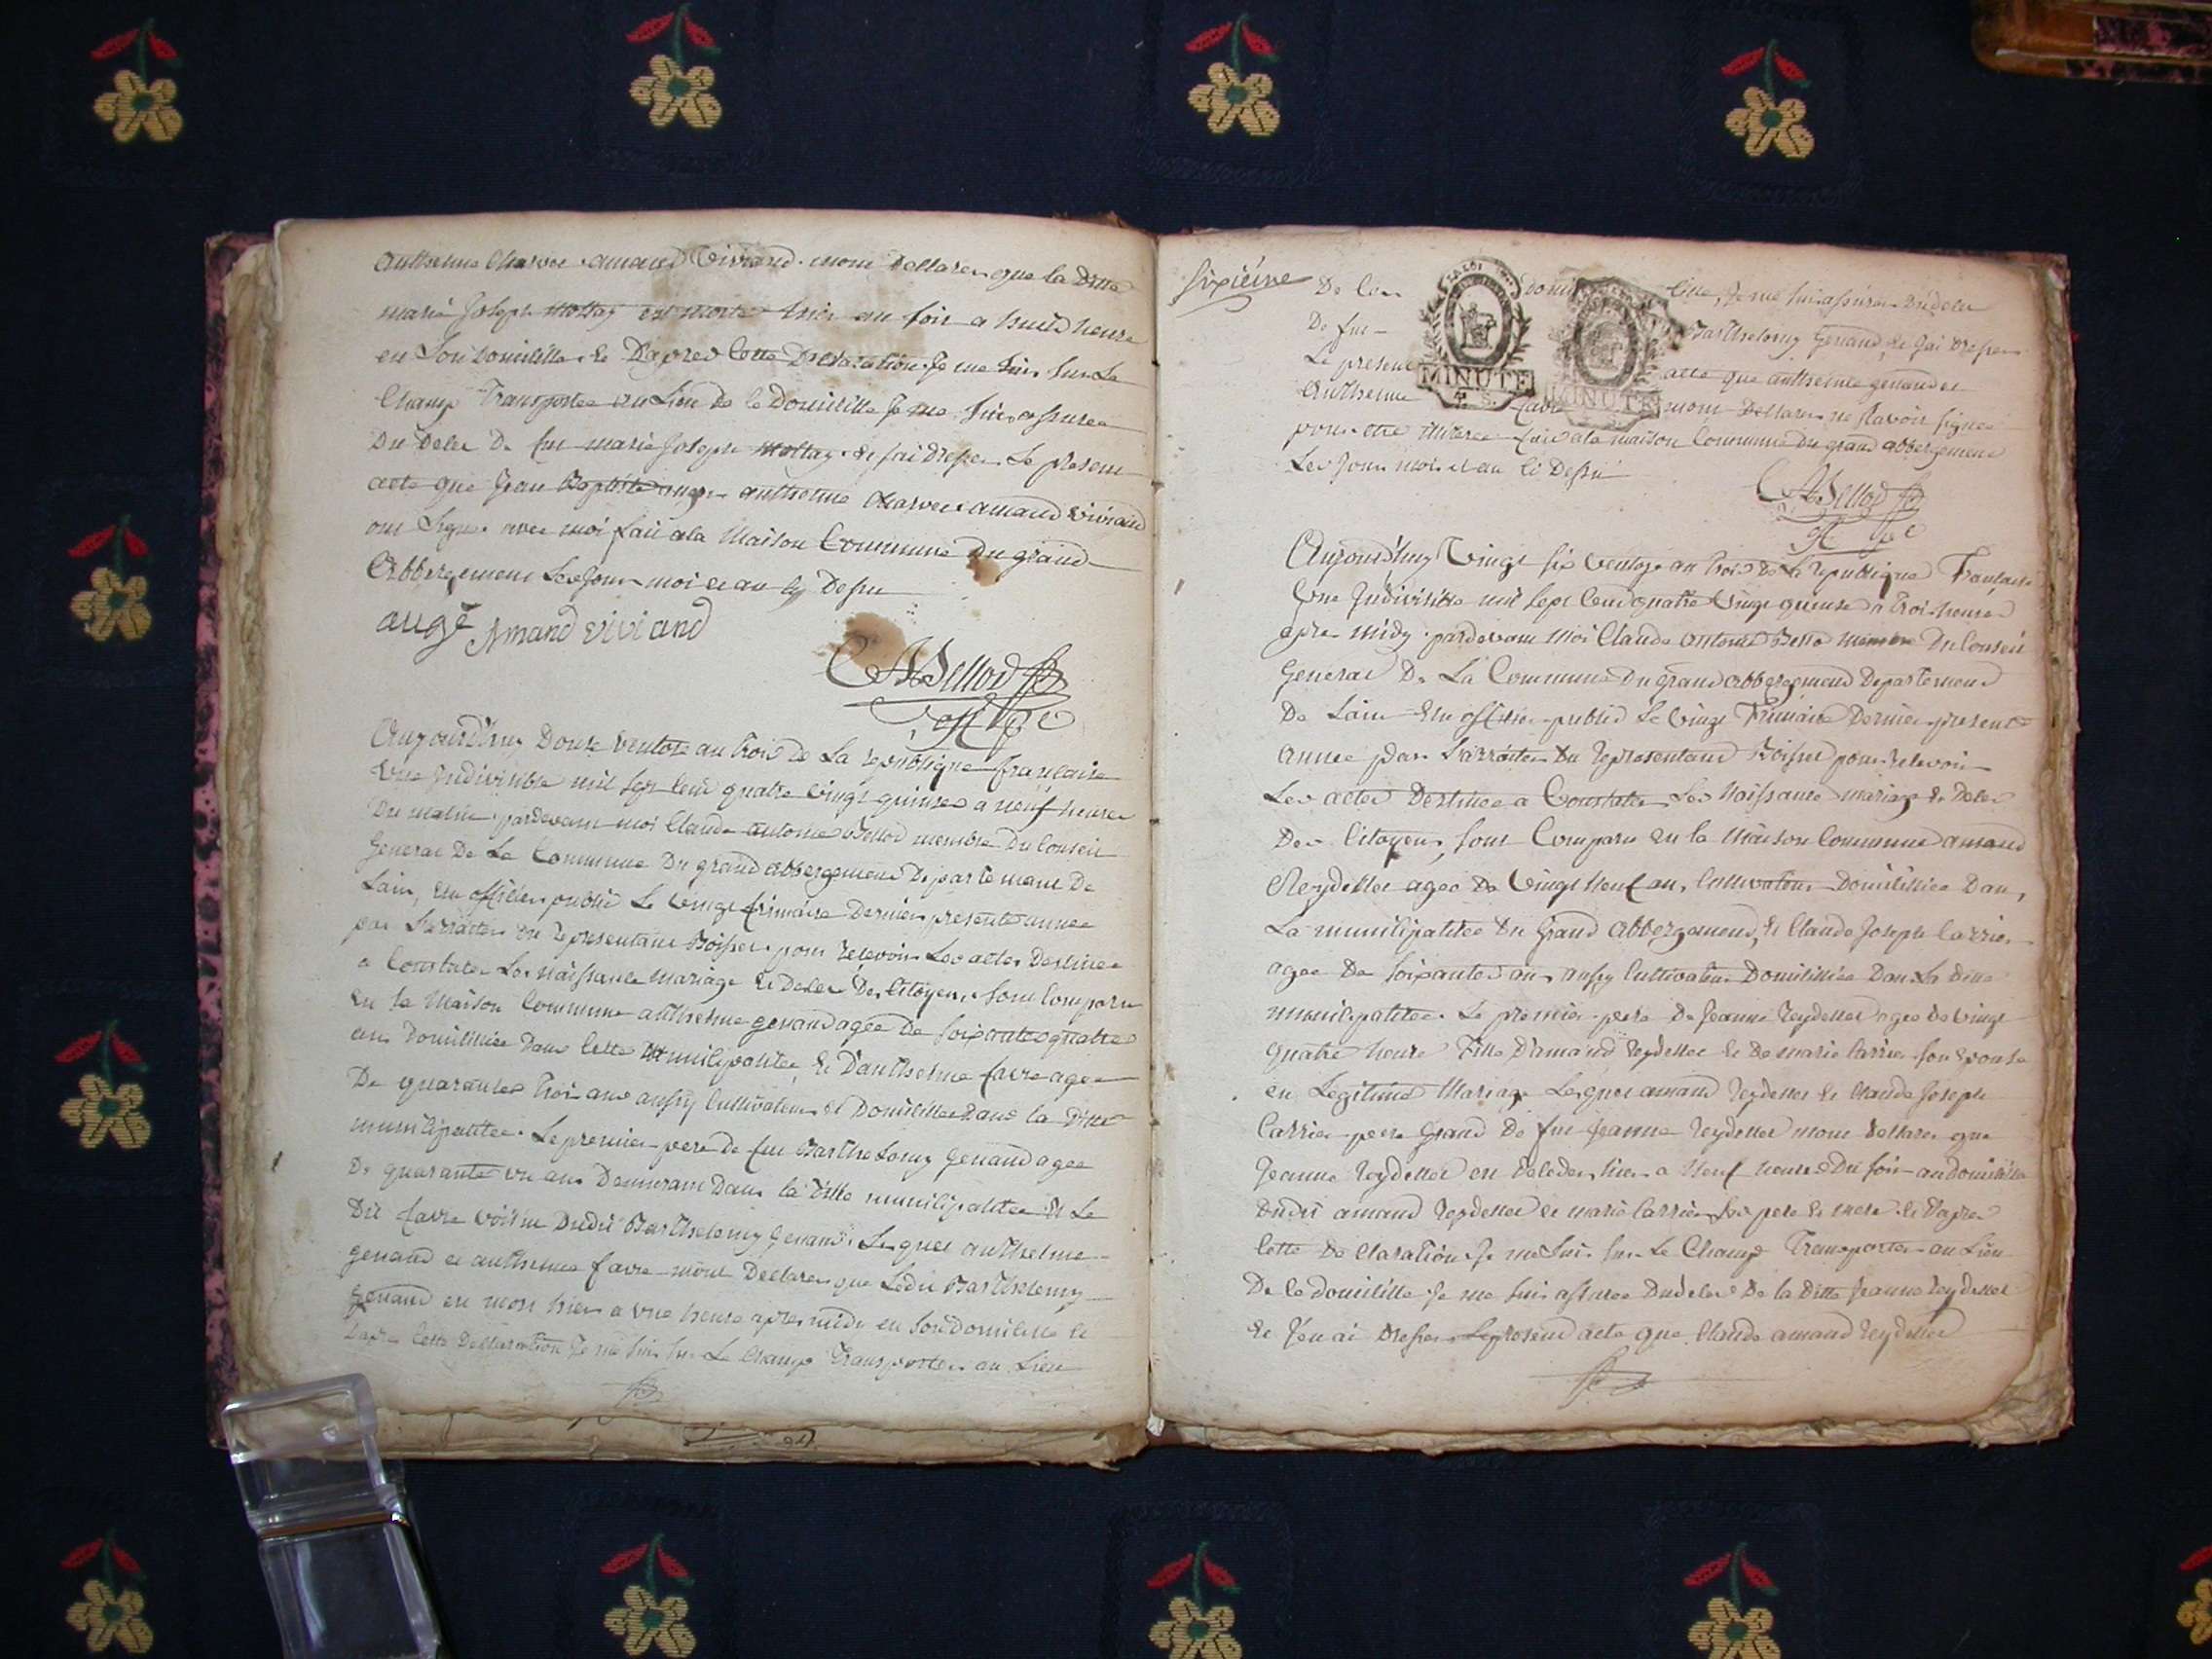 Anthelme Charvet amand Viviand mont declarer que la ditte
marie Joseph mollay est morte hier au soir a huit heure
en Son domicille et d'apres Cette Declaration Je me suis Sur Le
Champ Transportée au Lieu de Ce Domicille Je me suis assurée
Du deces De fue marie Joseph mollay et j'ai dresser Le present
acte que Jean Baptiste auge anthelme charvet amand viviand
ont Signe avec moi fait a la Maison Commune Du grand
Abbergement Les Jour moi et an cy Dessu
augé Amand viviand
CABellod
off pc
Aujourd'huy Douze Ventose an trois de La republique francaise
Une Indivisible mil sept cent quatre vingt quinse a neuf heure
Du matin pardevant moi Claude antoine Bellod membre du Conseil
General De La Commune Du grand abbergement Departement De
Lain, Elu officier public Le vingt frimaire Dernier presente annee
par L'arraiter du representant Boisset pour recevoir Les actes Destinee
a Constater Les Naissance Mariage Et Deces Des Citoyens Sont Comparu
En la Maison Commune anthelme genand agée De soixante quatre
ans Domicilliée Dans Cette Municipalitée, Et D'anthelme favre agee
De quarante trois ans aussy Cultivateur et Domicillée dans la Ditte
municipalitée. Le premier pere de fue Barthelemy Genand agée
De quarante un ans Demeurant Dans la ditte municipalitee Et Le
Dit favre voisin Dudit Barthelemy Genand. Lesquel anthelme
genand et anthelme favre mont Declarer que Ledit Barthelemy
genand est mort hier a une heure apres midi en Son Domicille et
d'apre Cette Declaration Je me suis sur Le Champ Transporter au Lieu
Sixiéme
De Ceu domicille, Je me suis assurer Du deces
De fue Barthelemy Genand, et J'ai Dresser
Le present acte que anthelme genand et
Anthelme favre mont Declarer ne Savoir signer
MINUTE
MINUTE
pour etre Illiteree fait a la maison Commune du grand abbergement
Les Jour moi et an Ci Dessu
CABellod
off pc
Aujourd'huy Vingt six Ventose an trois de la republique Francaise
Une Indivisible mil Sept Cent quatre Vingt quinse a trois heure
apre midy pardevant moi Claude antoine Bello membre Du Conseil
General De La Commune Du grand abbergement Departement
De Lain Elu officier public Le Vingt Frimaire Dernier presente
annee par L'arraiter Du representant Boisset pour recevoir
Les actes Destinee a Constater Les Naissance mariage et Deces
Des Citoyens, sont Comparu En la Maison Commune amand
Reydellet agee De Vingt Neuf ans Cultivateur Domicilliée Dans,
La municipalitée du Grand Abbergement, Et Claude Joseph Carrier
agée De soixante ans aussy Cultivateur Domicilliée Dans La ditte
municipalitee. Le premier pere De Jeanne Reydellet agee de Vingt
quatre heure Fille D'amand Reydellet Et De marie Carrier son Epouse
en Legitime Mariage Lesquel amand Reydellet Et Claude Joseph
Carrier pere Grand De fue Jeanne Reydellet mont declarer que
Jeanne Reydellet est deceder hier a Neuf heure Du soir au domicille
Dudit amand Reydellet et marie Carrier Ses pere Et mere Et D'apres
Cette Declaration Je me Suis sur Le Champ Transporter au Lieu
De Ce domicille Je me suis assuree Du deces De la Ditte Jeanne Reydellet
et J'en ai Dresser Le present acte que Claude amand Reydellet